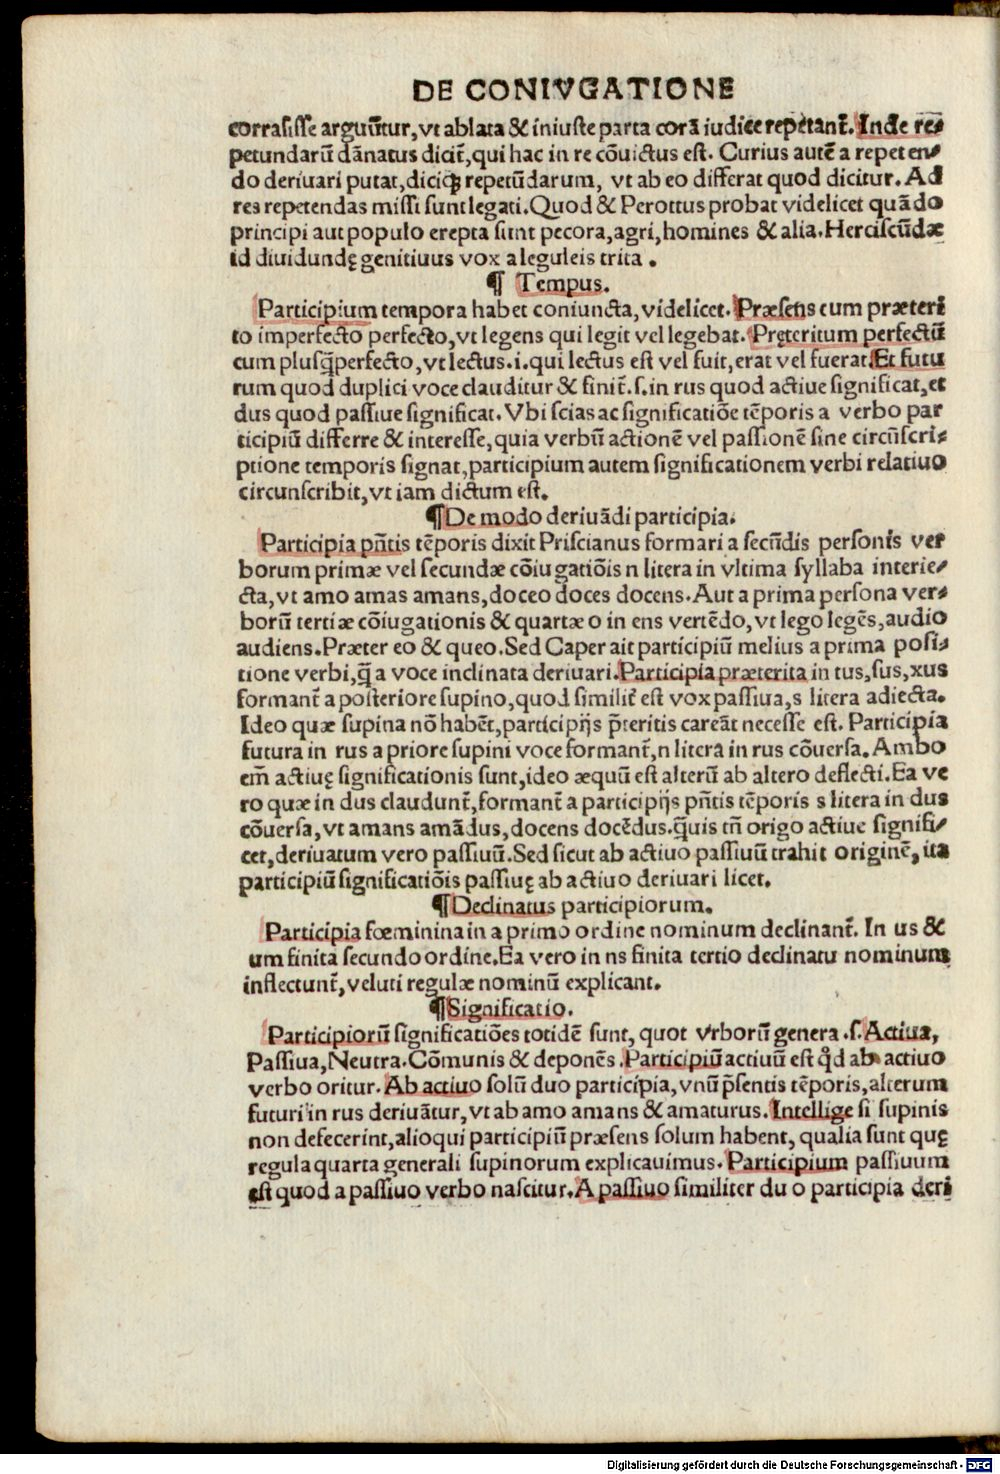 DE CONIVGATIONE
corrasisse arguũtur, vt ablata & iniuste parta corã iudice repetant̃. Inde re⸗
petundarũ dãnatus dicit̃, qui hac in re cõuictus est. Curius autẽ a repeten⸗
do deriuari putat, diciq̃ repetũdarum, vt ab eo differat quod dicitur. Ad
res repetendas missi sunt legati. Quod & Perottus probat videlicet quãdo
principi aut populo erepta sunt pecora, agri, homines & alia. Herciscũdæ
id diuidundę genitiuus vox a leguleis trita.
¶ Tempus.
Participium tempora habet coniuncta, videlicet. Præsens cum præteri
to imperfecto perfecto, vt legens qui legit vel legebat. Pręteritum perfectũ
cum plusq̃perfecto, vt lectus .i. qui lectus est vel fuit, erat vel fuerat. Et futu
rum quod duplici voce clauditur & finit̃ .s. in rus quod actiue significat, et
dus quod passiue significat. Vbi scias ac significatiõe tẽporis a verbo par
ticipiũ differre & interesse, quia verbũ actionẽ vel passionẽ sine circũscri⸗
ptione temporis signat, participium autem significationem verbi relatiuo
circunscribit, vt iam dictum est.
¶ De modo deriuãdi participia.
Participia pñtis tẽporis dixit Priscianus formari a secũdis personis ver
borum primæ vel secundæ cõiugatiõis n litera in vltima syllaba interie⸗
cta, vt amo amas amans, doceo doces docens. Aut a prima persona ver⸗
borũ tertiæ cõiugationis & quartæ o in ens vertẽdo, vt lego legẽs, audio
audiens. Præter eo & queo. Sed Caper ait participiũ melius a prima posi⸗
tione verbi, q̃ a voce inclinata deriuari. Participia præterita in tus, sus, xus
formant̃ a posteriore supino, quod similit̃ est vox passiua, s litera adiecta.
Ideo quæ supina nõ habẽt, participijs p̃teritis careãt necesse est. Participia
futura in rus a priore supini voce formant̃, n litera in rus cõuersa. Ambo
em̃ actiuę significationis sunt, ideo æquũ est alterũ ab altero deflecti. Ea ve
ro quæ in dus claudunt̃, formant̃ a participijs pñtis tẽporis s litera in dus
cõuersa, vt amans amãdus, docens docẽdus. q̃uis tñ origo actiue signifi⸗
cet, deriuatum vero passiuũ. Sed sicut ab actiuo passiuũ trahit originẽ, ita
participiũ significatiõis passiuę ab actiuo deriuari licet.
¶ Declinatus participiorum.
Participia fœminina in a primo ordine nominum declinant̃. In us &
um finita secundo ordine. Ea vero in ns finita tertio declinatu nominum
inflectunt̃, veluti regulæ nominũ explicant.
¶ Significatio.
Participiorũ significatiões totidẽ sunt, quot vrborũ genera .s. Actiua,
Passiua, Neutra. Cõmunis & deponẽs. Participiũ actiuũ est qd̃ ab actiuo
verbo oritur. Ab actiuo solũ duo participia, vnũ p̃sentis tẽporis, alterum
futuri in rus deriuãtur, vt ab amo amans & amaturus. Intellige si supinis
non defecerint, alioqui participiũ præsens solum habent, qualia sunt quę
regula quarta generali supinorum explicauimus. Participium passiuum
est quod a passiuo verbo nascitur. A passiuo similiter duo participia deri
Digitalisierung gefördert durch die Deutsche Forschungsgemeinschaft - DFG